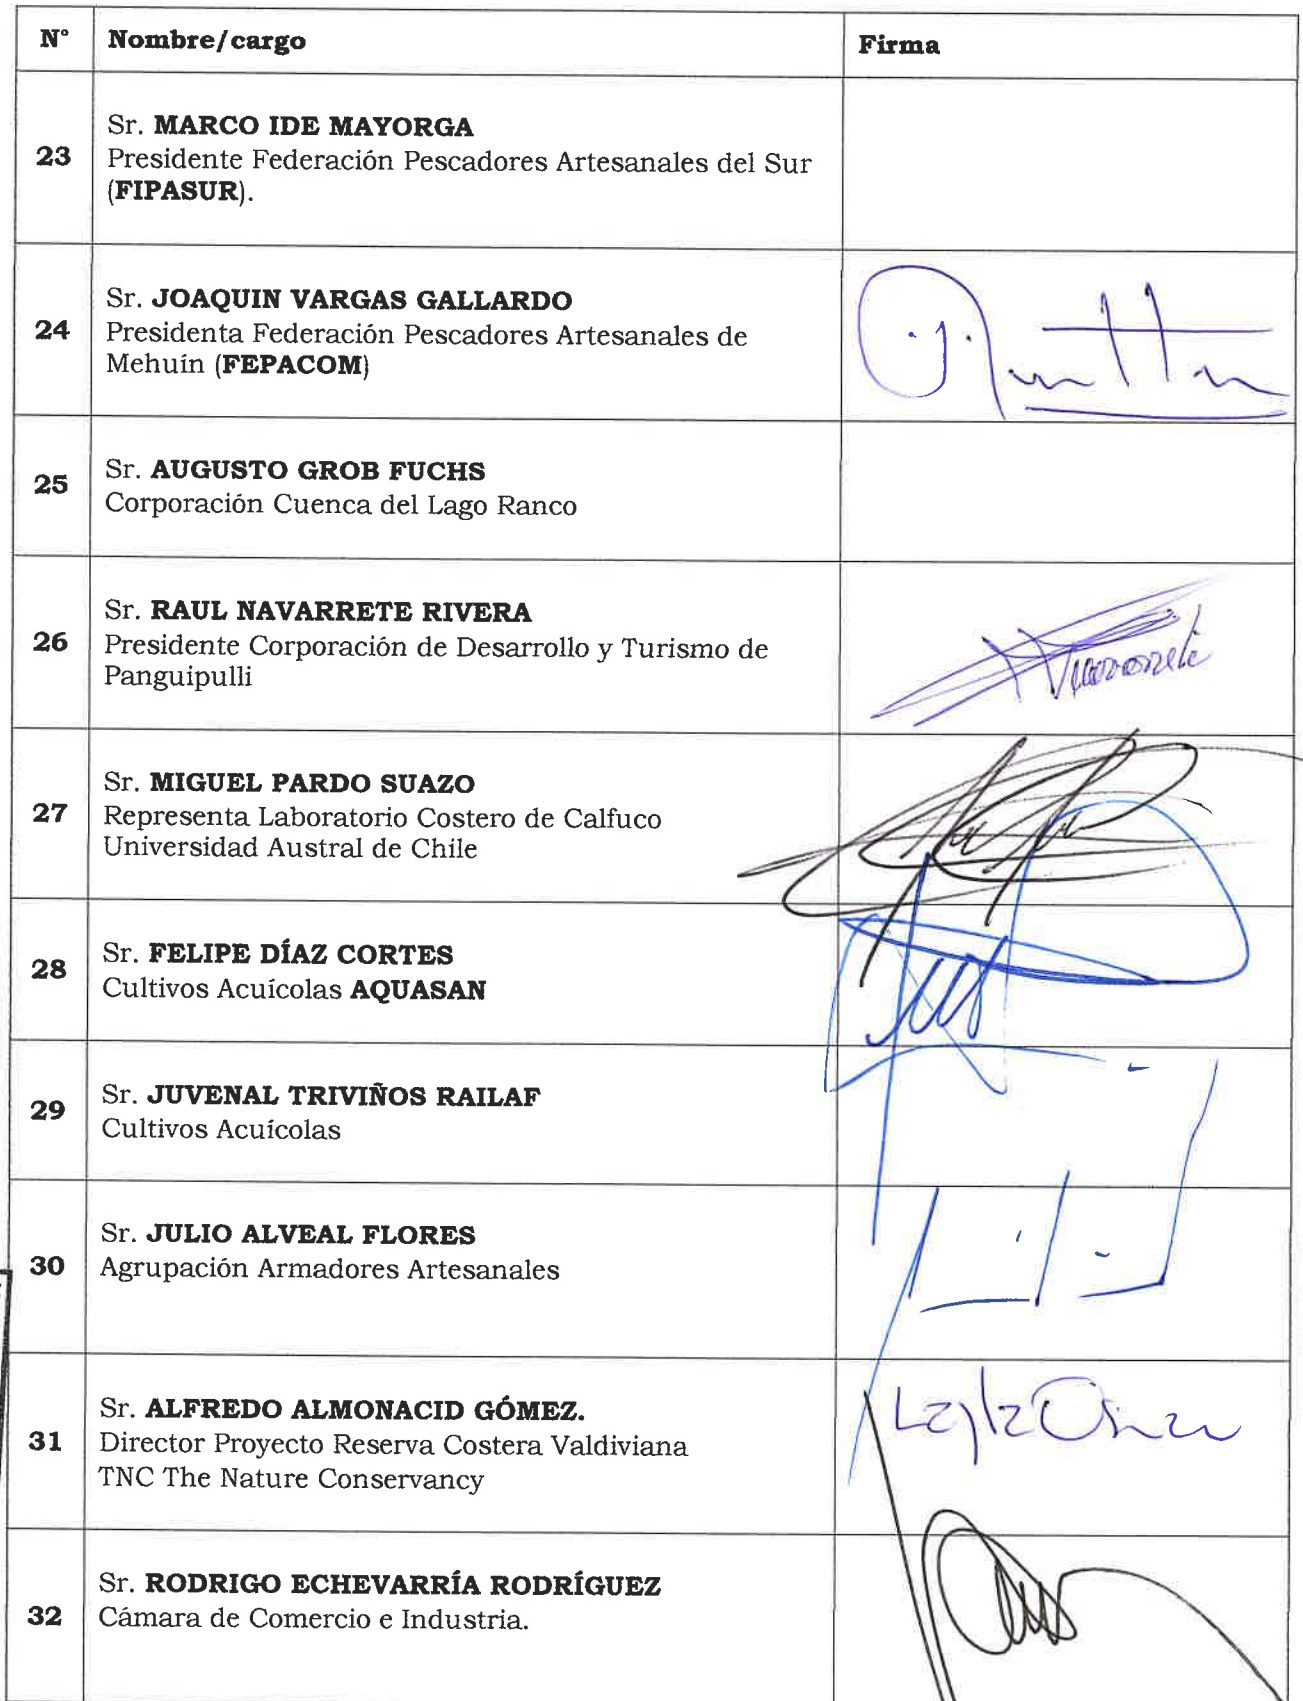 N° Nombre/cargo Firma
Sr. MARCO IDE MAYORGA
23 Presidente Federación Pescadores Artesanales del Sur
(FIPASUR).
Sr. JOAQUIN VARGAS GALLARDO
24 Presidenta Federación Pescadores Artesanales de
Mehuín (FEPACOM)
Sr. AUGUSTO GROB FUCHS
25 Corporación Cuenca del Lago Ranco
Sr. RAUL NAVARRETE RIVERA
26 Presidente Corporación de Desarrollo y Turismo de
Panguipulli
Sr. MIGUEL PARDO SUAZO
27 Representa Laboratorio Costero de Calfuco
Universidad Austral de Chile
Sr. FELIPE DÍAZ CORTES
28 Cultivos Acuícolas AQUASAN
Sr. JUVENAL TRIVIÑOS RAILAF
29 Cultivos Acuícolas
Sr. JULIO ALVEAL FLORES
30 Agrupación Armadores Artesanales
Sr. ALFREDO ALMONACID GÓMEZ.
31 Director Proyecto Reserva Costera Valdiviana
TNC The Nature Conservancy
Sr. RODRIGO ECHEVARRÍA RODRÍGUEZ
32 Cámara de Comercio e Industria.